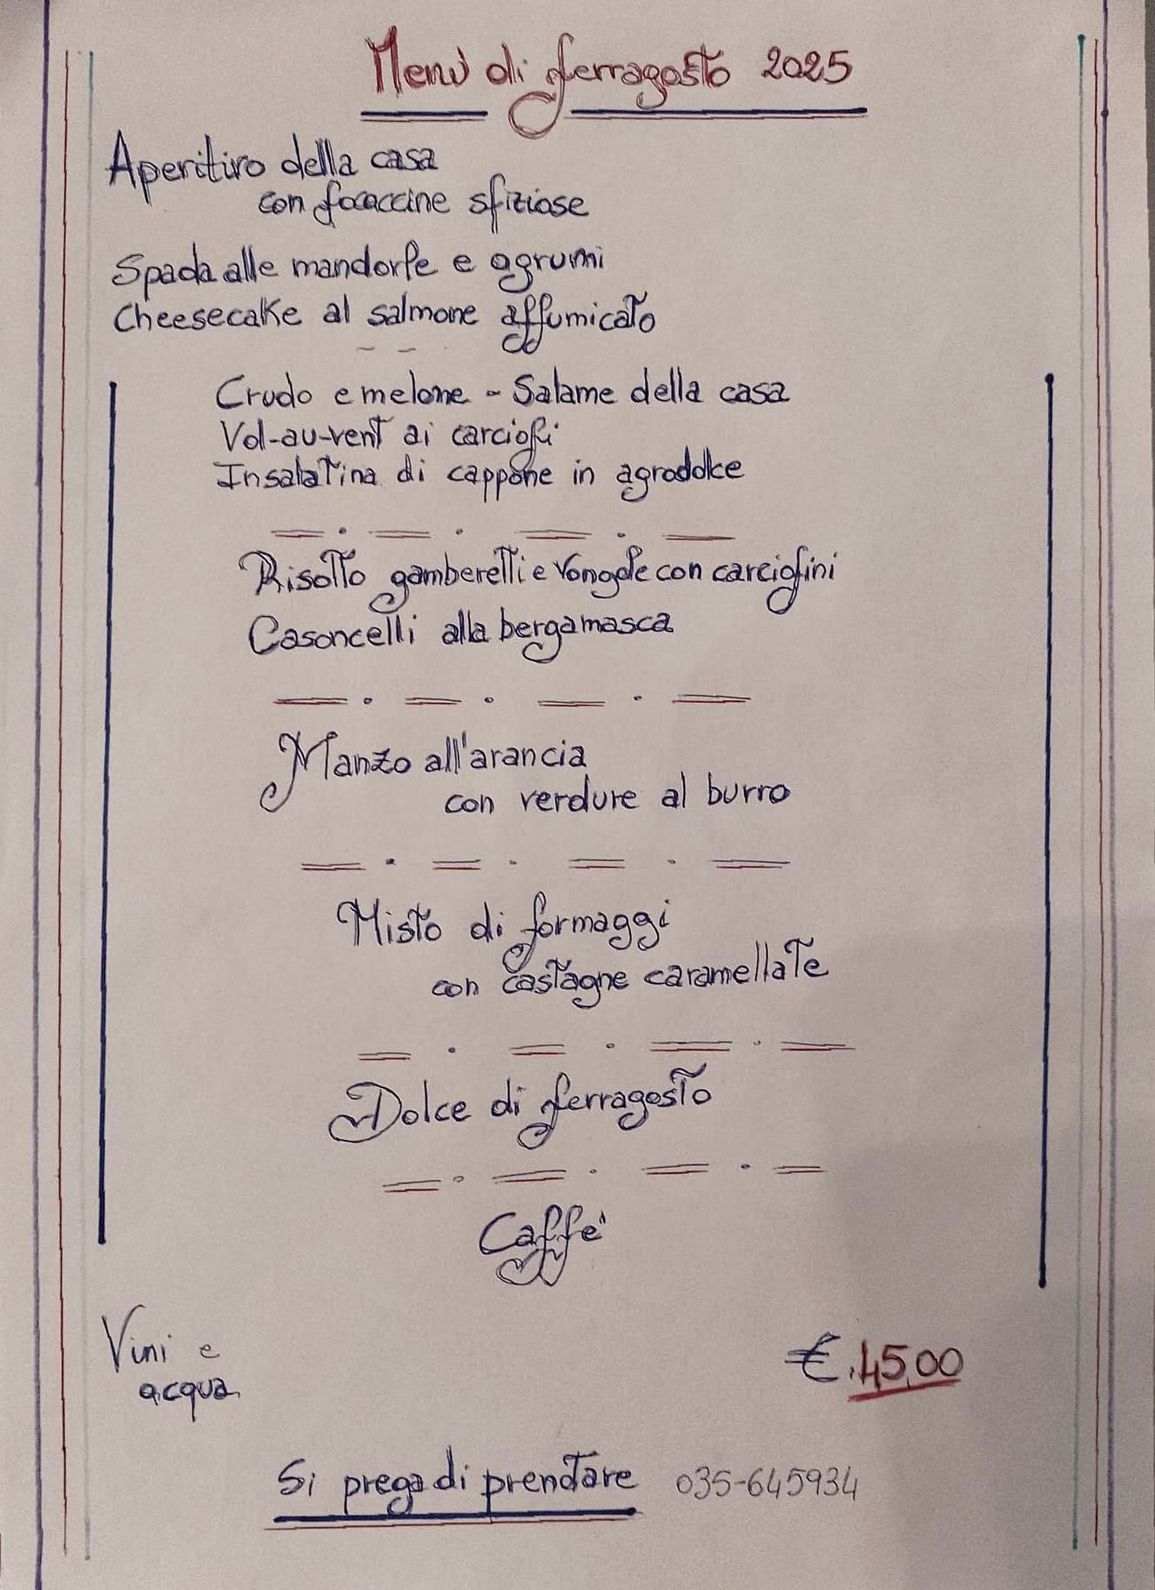 Menù di ferragosto 2025
Aperitivo della casa
con focaccine sfiziose
Spada alle mandorle e agrumi
Cheesecake al salmone affumicato
Crudo e melone - Salame della casa
Vol-au-vent ai carciofi
Insalatina di cappone in agrodolce
Risotto gamberetti e vongole con carciofini
Casoncelli alla bergamasca
Manzo all'arancia
con verdure al burro
Misto di formaggi
con castagne caramellate
Dolce di ferragosto
Caffè
Vini e
acqua
€. 45,00
Si prega di prentare 035-645934